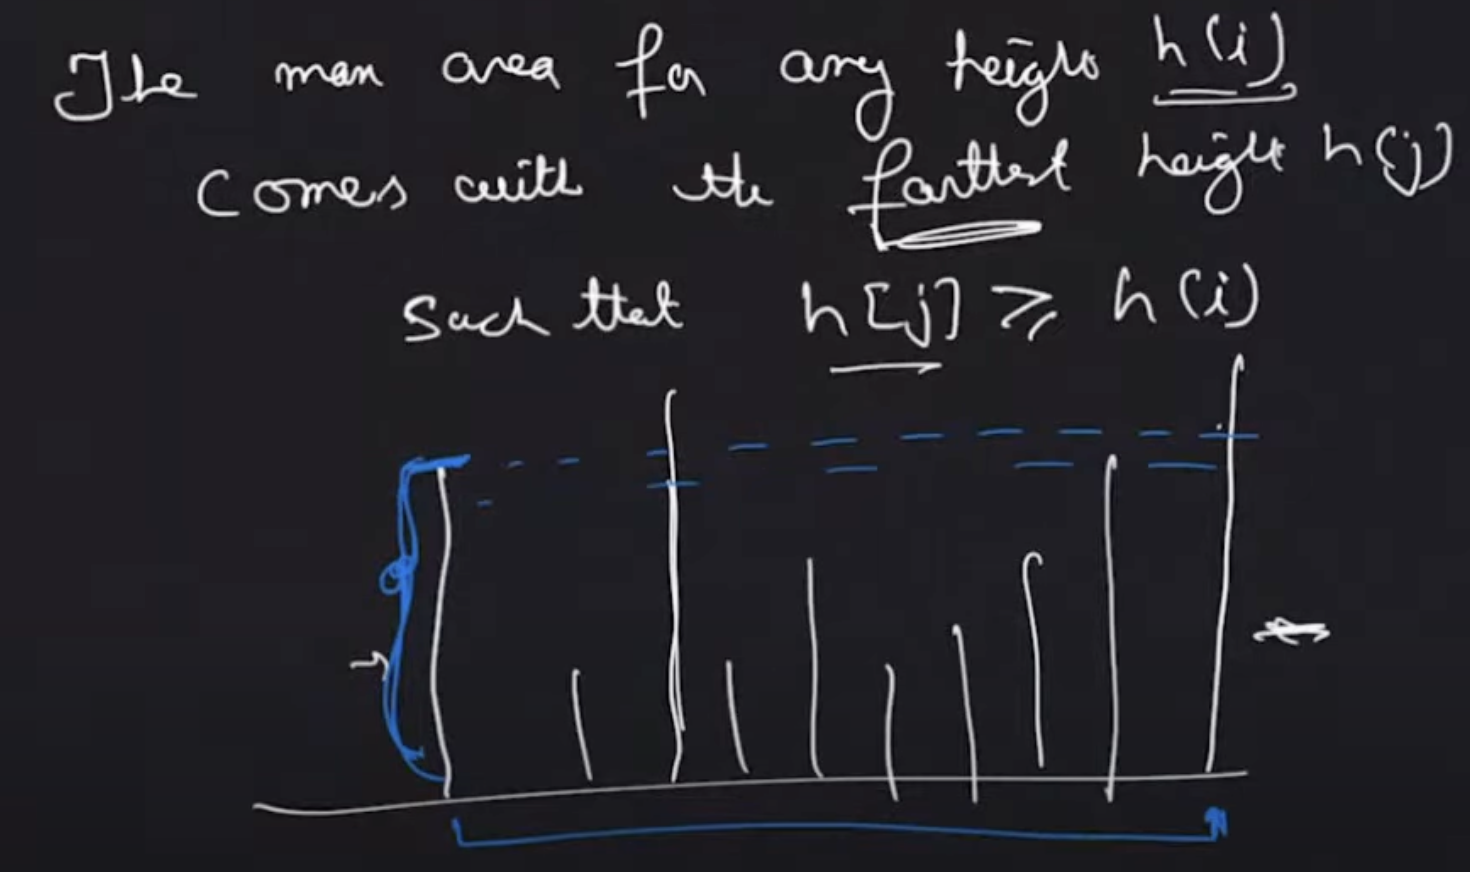 The max area for any height h(i)
comes with the farthest height h(j)
Such that h[j] ≥ h(i)